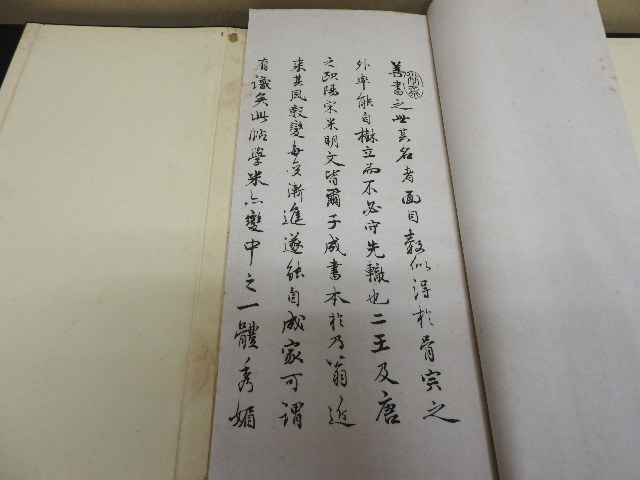 善書之世其名者面目似得於骨宍之
外率能自樹立而不必守先轍也二王及唐
之歐陽宋米明文皆爾子成書本於乃翁近
來其風數變每變漸進遂能自成家可謂
有識矣此帖學米亦變中之一體秀媚